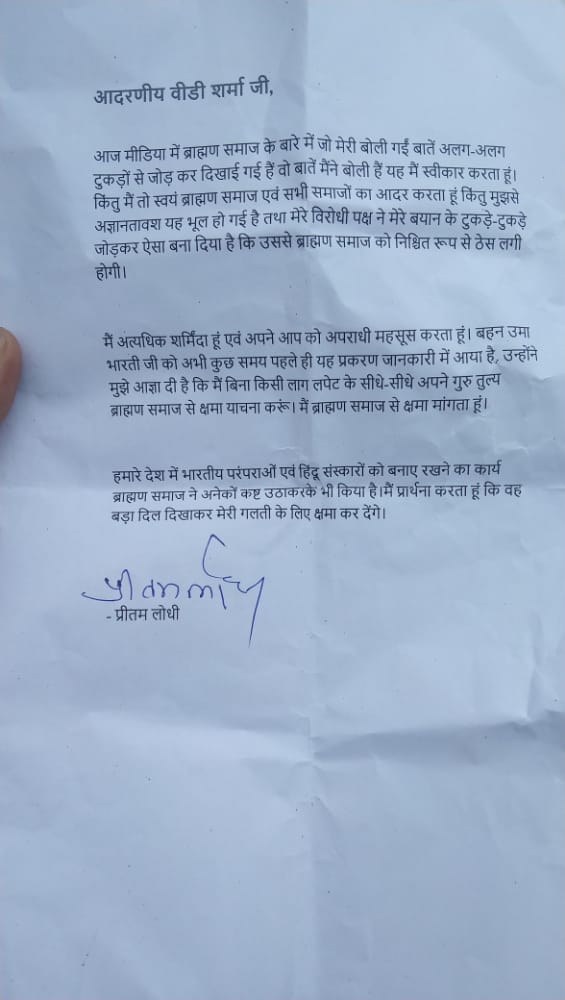 आदरणीय वीडी शर्मा जी,
आज मीडिया में ब्राह्मण समाज के बारे में जो मेरी बोली गईं बातें अलग-अलग
टुकड़ों से जोड़ कर दिखाई गई हैं वो बातें मैंने बोली हैं यह मैं स्वीकार करता हूं।
किंतु मैं तो स्वयं ब्राह्मण समाज एवं सभी समाजों का आदर करता हूं किंतु मुझसे
अज्ञानतावश यह भूल हो गई है तथा मेरे विरोधी पक्ष ने मेरे बयान के टुकड़े-टुकड़े
जोड़कर ऐसा बना दिया है कि उससे ब्राह्मण समाज को निश्चित रूप से ठेस लगी
होगी।
मैं अत्यधिक शर्मिंदा हूं एवं अपने आप को अपराधी महसूस करता हूं। बहन उमा
भारती जी को अभी कुछ समय पहले ही यह प्रकरण जानकारी में आया है, उन्होंने
मुझे आज्ञा दी है कि मैं बिना किसी लाग लपेट के सीधे-सीधे अपने गुरु तुल्य
ब्राह्मण समाज से क्षमा याचना करूं। मैं ब्राह्मण समाज से क्षमा मांगता हूं।
हमारे देश में भारतीय परंपराओं एवं हिंदू संस्कारों को बनाए रखने का कार्य
ब्राह्मण समाज ने अनेकों कष्ट उठाकरके भी किया है।मैं प्रार्थना करता हूं कि वह
बड़ा दिल दिखाकर मेरी गलती के लिए क्षमा कर देंगे।
प्रीतम लोधी
- प्रीतम लोधी